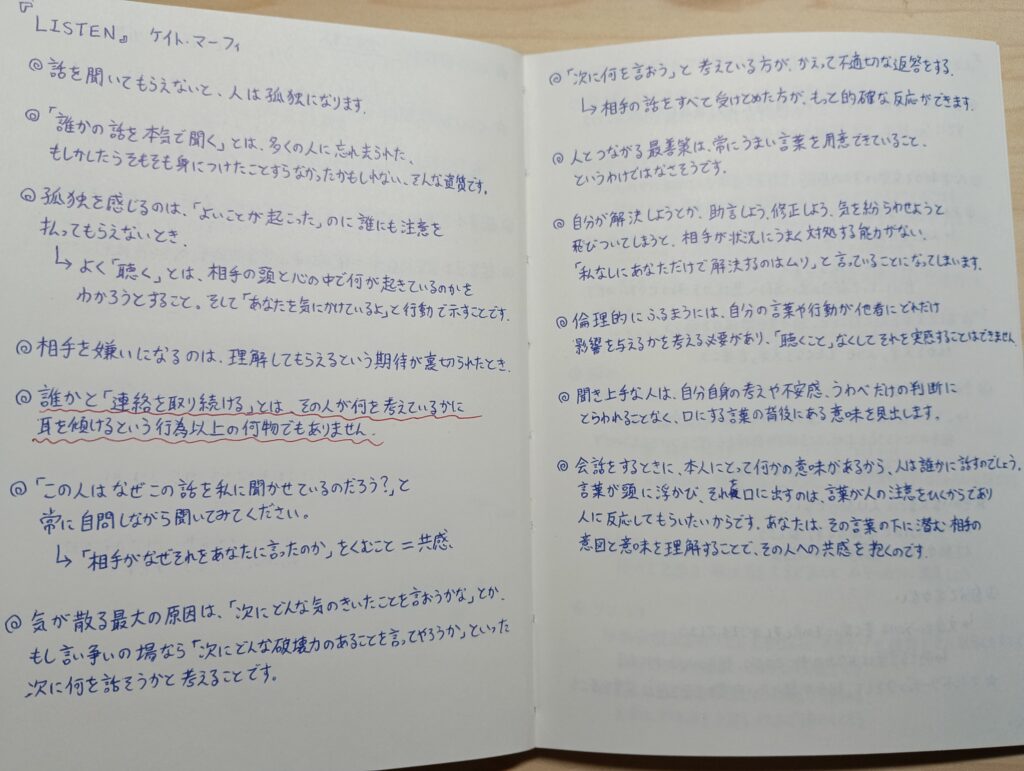 『LISTEN』 ケイト・マーフィ
◎話を聞いてもらえないと、人は孤独になります。
◎「誰かの話を本気で聞く」とは、多くの人に忘れ去られた、
もしかしたらそもそも身につけたことすらなかったかもしれない、そんな資質です。
◎孤独を感じるのは、「よいことが起こった」のに誰にも注意を
払ってもらえないとき.
↳よく「聴く」とは、相手の頭と心の中で何が起きているのかを
わかろうとすること。そして「あなたを気にかけているよ」と行動で示すことです.
◎相手を嫌いになるのは、理解してもらえるという期待が裏切られたとき.
◎誰かと「連絡を取り続ける」とは、その人が何を考えているかに
耳を傾けるという行為以上の何物でもありません.
◎「この人はなぜこの話を私に聞かせているのだろう?」と
常に自問しながら聞いてみてください。
↳「相手がなぜそれをあなたに言ったのか」をくむこと=共感、
◎気が散る最大の原因は、「次にどんな気のきいたことを言おうかな」とか、
もし言い争いの場なら「次にどんな破壊力のあることを言ってやろうか」といった
次に何を話そうかと考えることです。
◎「次に何を言おう」と考えている方が、かえって不適切な返答をする.
↳相手の話をすべて受けとめた方が、もっと的確な反応ができます.
◎人とつながる最善策は、常にうまい言葉を用意できていること、
というわけではなさそうです.
◎自分が解決しようとか、助言しよう、修正しよう、気を紛らわせようと
飛びついてしまうと、相手が状況にうまく対処する能力がない、
「私なしにあなただけで解決するのはムリ」と言っていることになってしまいます.
◎倫理的にふるまうには、自分の言葉や行動が他者にどれだけ
影響を与えるかを考える必要があり、「聴くこと」なくしてそれを実感することはできません
◎聞き上手な人は、自分自身の考えや不安感、うわべだけの判断に
とらわれることなく、口にする言葉の背後にある意味を見出します。
◎会話をするときに、本人にとって何かの意味があるから、人は誰かに話すのでしょう.
言葉が頭に浮かび、それを口に出すのは、言葉が人の注意をひくからであり
人に反応してもらいたいからです。あなたは、その言葉の下に潜む相手の
意図と意味を理解することで、その人への共感を抱くのです.